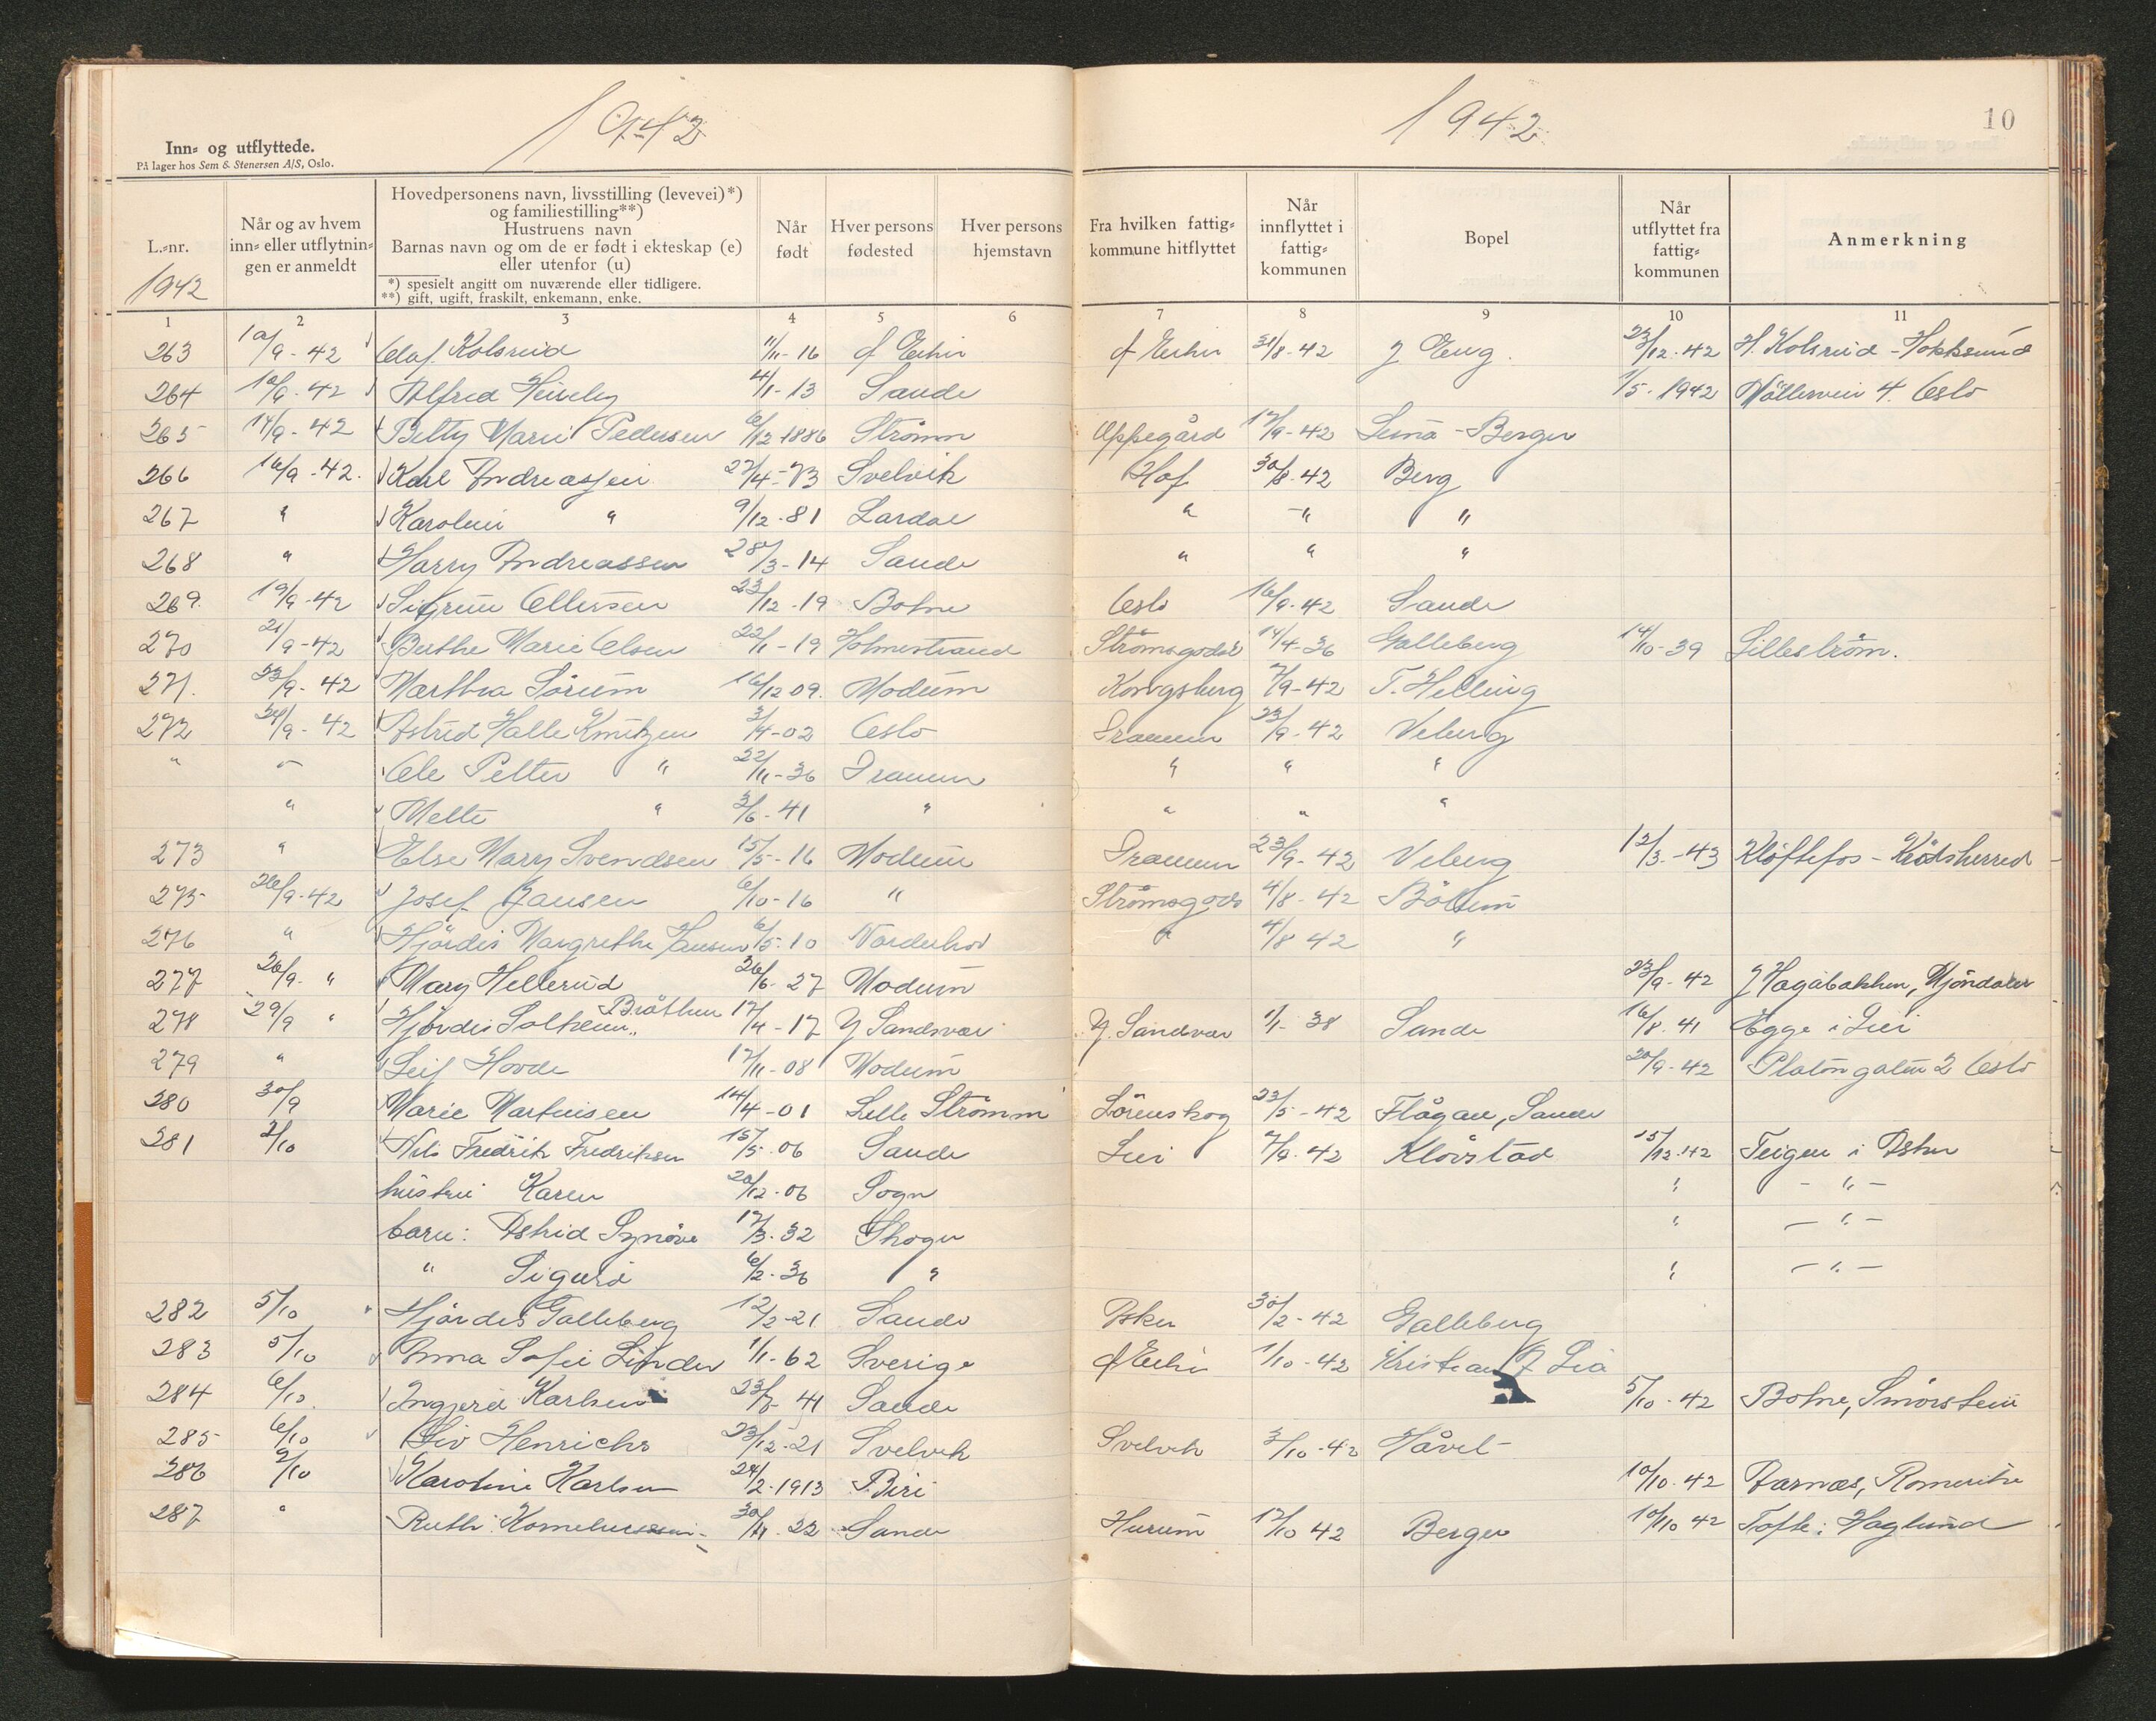 1942
1942
10
Inn- og utflyttede.
På lager hos Sem & Stenersen A/S, Oslo.
L.-nr.
1942
Når og av hvem
inn- eller utflytnin-
gen er anmeldt
Hovedpersonens navn, livsstilling (levevei)*)
og familiestilling**)
Hustruens navn
Barnas navn og om de er født i ekteskap (e)
eller utenfor (u)
*) spesielt angitt om nuværende eller tidligere.
**) gift, ugift, fraskilt, enkemann, enke.
Når
født
Hver persons
fødested
Hver persons
hjemstavn
Fra hvilken fattig-
kommune hitflyttet
Når
innflyttet i
fattig-
kommunen
Bopel
Når
utflyttet fra
fattig-
kommunen
Anmerkning
1 2 3 4 5 6 7 8 9 10 11
263 10/9-42 Olaf Kolsrud 11/11-16 Ø Eiker Ø Eiker 31/8-42 Eng 23/12-42 H. Kolsrud - Hokksund
264 10/9-42 Alfred 4/1-13 Sande 1/5-1942 4. Oslo
265 14/9-42 Betty Marie Pedersen 6/12 1886 Strømm Oppegård 12/9-42 Berger
266 16/9-42. Karl Andreassen 27/4-73 Svelvik Hof 30/8-42 Berg
267 " Karoline " 9/12-81 Lardal " -" "
268 " Harry Andreassen 28/3-14 Sande " " "
269. 19/9-42 Sigrun Ellefsen 23/12-19 Botne Oslo 16/9-42 Sande
270 21/9-42 Berthe Marie Olsen 22/1-19 Holmestrand Strømsgodset 14/4-36 Galleberg 14/10-39 Lillestrøm.
271. 23/9-42 Marthea Sørum 16/12 09. Modum Kongsberg 7/9-42 F. Helling
272 24/9-42 Astrid Halle Knutzen 3/4-02 Oslo Drammen 23/9-42 Veberg
" " Ole Petter " 22/11-36 Drammen " " "
" Mette " 3/6-41 " " " "
273 " Else Mary Svendsen 15/5-16 Modum Drammen 23/9-42 Veberg 12/3-43 Kløftefos - Krødsherred
275 26/9-42 Josef Hansen 6/10-16 " Strømsgods 4/8-42 Bølum
276 " Hjørdis Margrethe Hansen 6/5-10 Norderhov " 4/8 42 "
277 26/9 " Mary Hellerud 26/6-27 Modum 23/9-42 Hagabakken, Mjøndalen
278 29/9 " Hjørdis Solheim Bråthen 17/4-17 Y Sandsvær Y. Sandsvær 1/1-38 Sande 16/8-41 Egge i Lier
279 " Leif Hovde 17/11-08 Modum 20/9-42 Platongaten 2 Oslo
280 30/9 Marie Martinsen 14/4-01 Lille Strømm Lørenskog 23/5-42 Flågan, Sande
281 2/10 Nils Fredrik Fredriksen 15/5-06 Sande Lier 7/9-42 Klovstad 15/12-42 Teigen i Asker
hustru Karen 20/12-06 Sogn " - " -
barn: Astrid Synøve 17/3-32 Skoger " - " -
" Sigurd 6/2-36 " " - " -
282 5/10 Hjørdis Galleberg 12/2-21 Sande Asker 30/2-42 Galleberg
283 5/10 Anna Sofie Linder 1/1-62 Sverige Ø Eiker 1/10-42 Kristian Lia
284 6/10 Ingjerd Karlsen 23/8-41 Sande 5/10-42 Botne, Smørstein
285 6/10 Liv Henrichs 23/12-21 Svelvik Svelvik 3/10-42 Håvet
286 9/10 Karoline Karlsen 24/2-1913 Biri 10/10-42 Aarnæs, Romerike
287 " Ruth Korneliussen 30/11-22 Sande Hurum 12/10 42 Berger 10/10 42 Tofte: Haglund